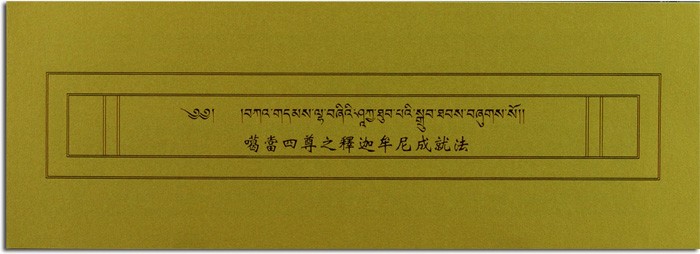 ༄༅། །བཀའ་གདམས་ལྷ་བཞིའི་ཤཱཀྱ་ཐུབ་པའི་སྒྲུབ་ཐབས་བཞུགས་སོ།།
噶當四尊之釋迦牟尼成就法